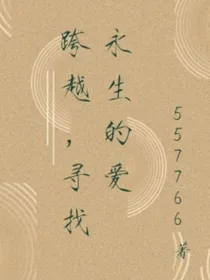 跨越，寻找
永生的爱
557766 著